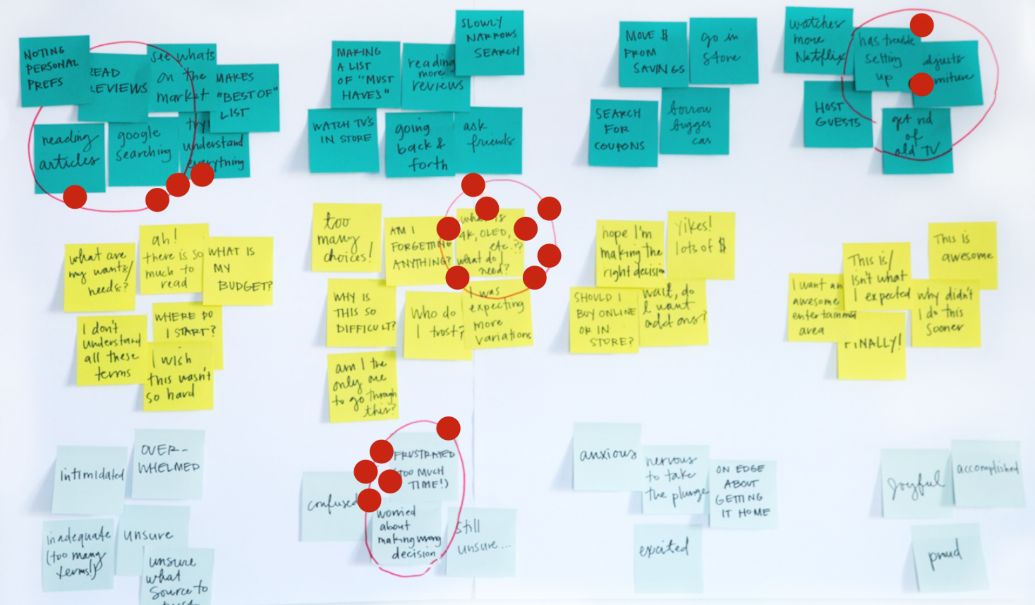 NOTING
PERSONAL
PREFS
READ
REVIEWS
see whats
on the
market
MAKES
"BEST OF"
LIST
reading
articles
google
searching
understand
everything
MAKING
A LIST
OF "MUST
HAVES"
reading
more
reviews
SLOWLY
NARROWS
SEARCH
WATCH TV'S
IN STORE
going
back &
forth
ask
friends
MOVE $
FROM
SAVINGS
go in
store
SEARCH
FOR
COUPONS
borrow
bigger
car
watches
more
Netflix
has trouble
setting
up
adjusts
HOST
GUESTS
get rid
of
old TV
what are
my wants/
needs?
ah!
there is so
much to
read
WHAT IS
MY
BUDGET?
I don't
understand
all these
terms
WHERE DO
I START?
I wish
this wasn't
so hard
too
many
choices!
AM I
FORGETTING
ANYTHING?
what is
4K, OLED,
etc.??
what do I
need?
WHY IS
THIS SO
DIFFICULT?
Who do
I trust?
I was
expecting
more
variations
am I the
only one
to go through
this?
hope I'm
making the
right decision
yikes!
lots of $
SHOULD I
BUY ONLINE
OR IN
STORE?
wait, do
I want
add ons?
I want an
awesome
entertainment
area
This is/
isn't what
I expected
This is
awesome
why didn't
I do this
sooner
FINALLY!
intimidated
OVER-
WHELMED
inadequate
(too many
terms!)
unsure
unsure
what
source to
confused
FRUSTRATED
(TOO MUCH
TIME!)
worried
about
making wrong
decision
still
unsure...
anxious
nervous
to take
the plunge
ON EDGE
ABOUT
GETTING
IT HOME
excited
joyful
accomplished
proud